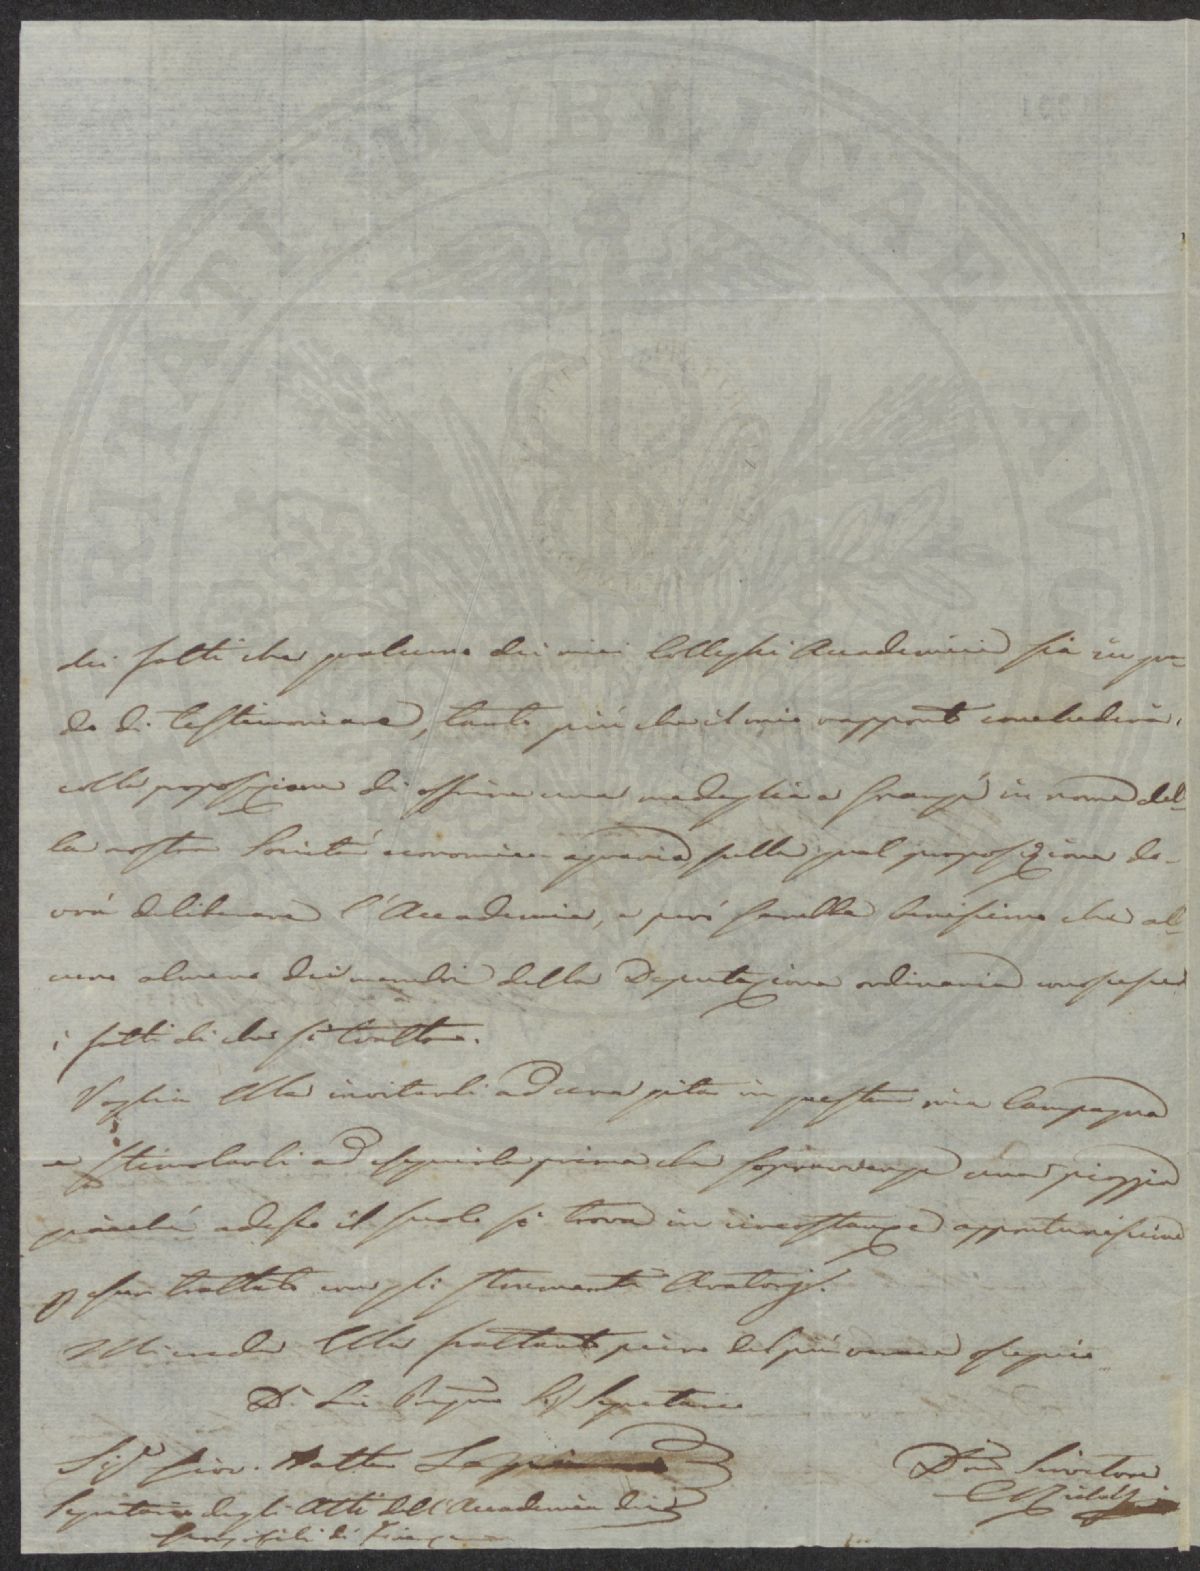 PROSPERITATI PVBLICAE AVGENDAE
dei fatti che qualcuno dei miei Colleghi Accademici sia in gra-
do di testimoniare, tanto più che il mio rapporto concluderà
colla proposizione di offrire una medaglia a Grangé in nome del-
la nostra Società economico agraria sulla qual proposizione do-
vrà deliberare l'Accademia, e però sarebbe benissimo che al-
cuno almeno dei membri della Deputazione ordinaria conoscesse
i fatti di che si tratta.
Voglia Ella invitarli ad una gita in questa mia Campagna
e stimolarli ad eseguirla prima che sopravvenga una pioggia
giacchè adesso il suolo si trova in circostanze opportunissime
p esser trattato con gli strumenti Aratorj.
Mi creda Ella frattanto pieno del più verace ossequio
Di Lei Pregmo Sig Segretario
Sigr Giov.
Segretario degli Atti dell'Accademia dei
Georgofili di Firenze
Devmo Servitore
C Ridolfi